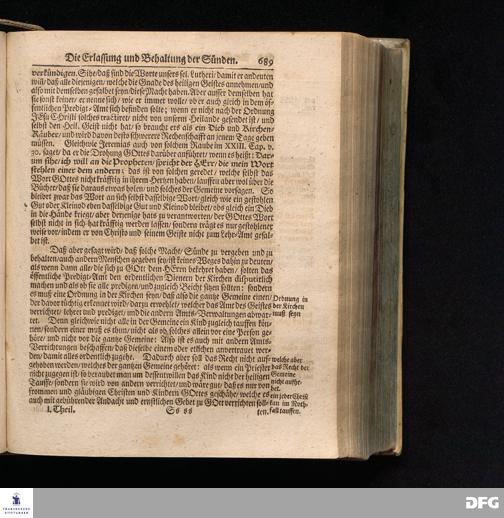 Die Erlassung und Behaltung der Sünden. 689
verkündigen. Sihe/ daß sind die Worte unsers sel. Lutheri/ damit er andeuten
will/ daß alle diejenigen/ welche die Gnade des heiligen Geistes annehmen/ und
also mit demselben gesalbet seyn/ diese Macht haben. Aber ausser demselben hat
sie sonst keiner/ er nenne sich/ wie er immer wolle/ ob er auch gleich in dem öf-
fentlichen Predigt-Amt sich befinden solte; wenn er nicht nach der Ordnung
JEsu Christi solches tractiret/ nicht von unserm Heilande gesendet ist/ und
selbst den Heil. Geist nicht hat/ so braucht ers als ein Dieb und Kirchen-
Räuber/ und wird davon desto schwerere Rechenschafft an jenem Tage geben
müssen. Gleichwie Jeremias auch von solchem Raube im XXIII. Cap. v.
30. saget/ da er die Drohung GOttes darüber anführet/ wenn es heist: Dar-
um sihe/ ich will an die Propheten/ spricht der HErr/ die mein Wort
stehlen einer dem andern; das ist von solchen geredet/ welche selbst das
Wort GOttes nicht kräfftig in ihrem Hertzen haben/ lauffen aber wol über die
Bücher/ daß sie daraus etwas holen/ und solches der Gemeine vorsagen. So
bleibet zwar das Wort an sich selbst dasselbige Wort/ gleich wie ein gestohlen
Gut oder Kleinod eben dasselbige Gut und Kleinod bleibet/ obs gleich ein Dieb
in die Hände kriegt/ aber derjenige hats zu verantworten/ der GOttes Wort
selbst nicht in sich hat kräfftig werden lassen/ sondern trägt es nur gestohlener
weise vor/ indem er von Christo und seinem Geiste nicht zum Lehr-Amt gesal-
bet ist.
Daß aber gesagt wird/ daß solche Macht/ Sünde zu vergeben und zu
behalten/ auch andern Menschen gegeben sey/ ist keines Weges dahin zu deuten/
als wenn dann alle/ die sich zu GOtt dem HErrn bekehret haben/ solten das
öffentliche Predigt-Amt den ordentlichen Dienern der Kirchen disputirlich
machen und als ob sie alle predigen/ und zugleich Beicht sitzen solten: sondern
es muß eine Ordnung in der Kirchen seyn/ daß also die gantze Gemeine einen/
der davor tüchtig erkennet wird/ darzu erwehlet/ welcher das Amt des Geistes
verrichte/ lehret und prediget/ und die andern Amts-Verwaltungen abwar-
tet. Denn gleichwie nicht alle in der Gemeine ein Kind zugleich tauffen kön-
nen/ sondern einer muß es thun/ nicht als ob solches allein vor eine Person ge-
höre/ und nicht vor die gantze Gemeine: Also ist es auch mit andern Amts-
Verrichtungen beschaffen/ daß dieselbe einem oder etlichen anvertrauet wer-
den/ damit alles ordentlich zugehe. Dadurch aber soll das Recht nicht auf-
gehoben werden/ welches der gantzen Gemeine gehöret: als wenn ein Prediger
nicht zugegen ist/ so beraubet man um dessentwillen das Kind nicht der heiligen
Tauffe/ sondern sie wird von andern verrichtet/ und wäre gut/ daß es nur von
frommen und gläubigen Christen und Kindern GOttes geschähe/ welche es
auch mit gebührender Andacht und ernstlichen Gebet zu GOtt verrichten soll-
I. Theil. Ss ss ten.
Ordnung in
der Kirchen
muß seyn
welche aber
das Recht der
Gemeine
nicht aufhe-
bet.
ein jeder Christ
kan im Noth-
fall tauffen.
FRANCKESCHE
STIFTUNGEN
DFG